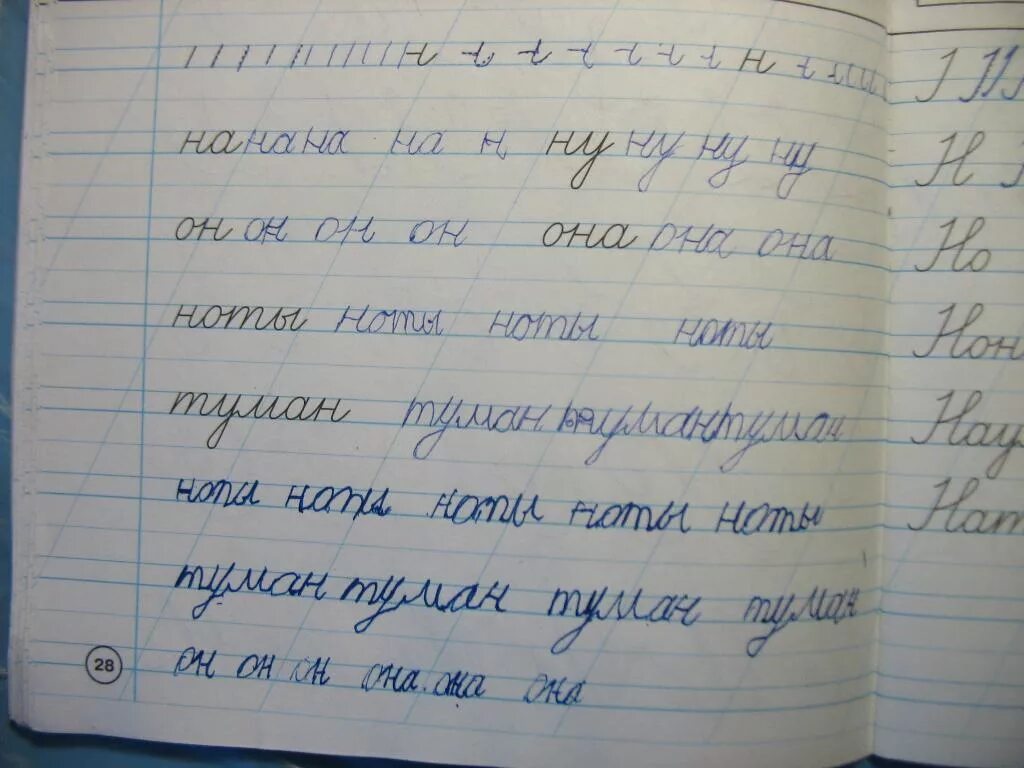 н н
на на на на н ну ну ну ну
он он он он она она она
ноты ноты ноты ноты
туман туман туман туман
ноты ноты ноты ноты ноты
туман туман туман туман
он он он она она она
28
Н
Но